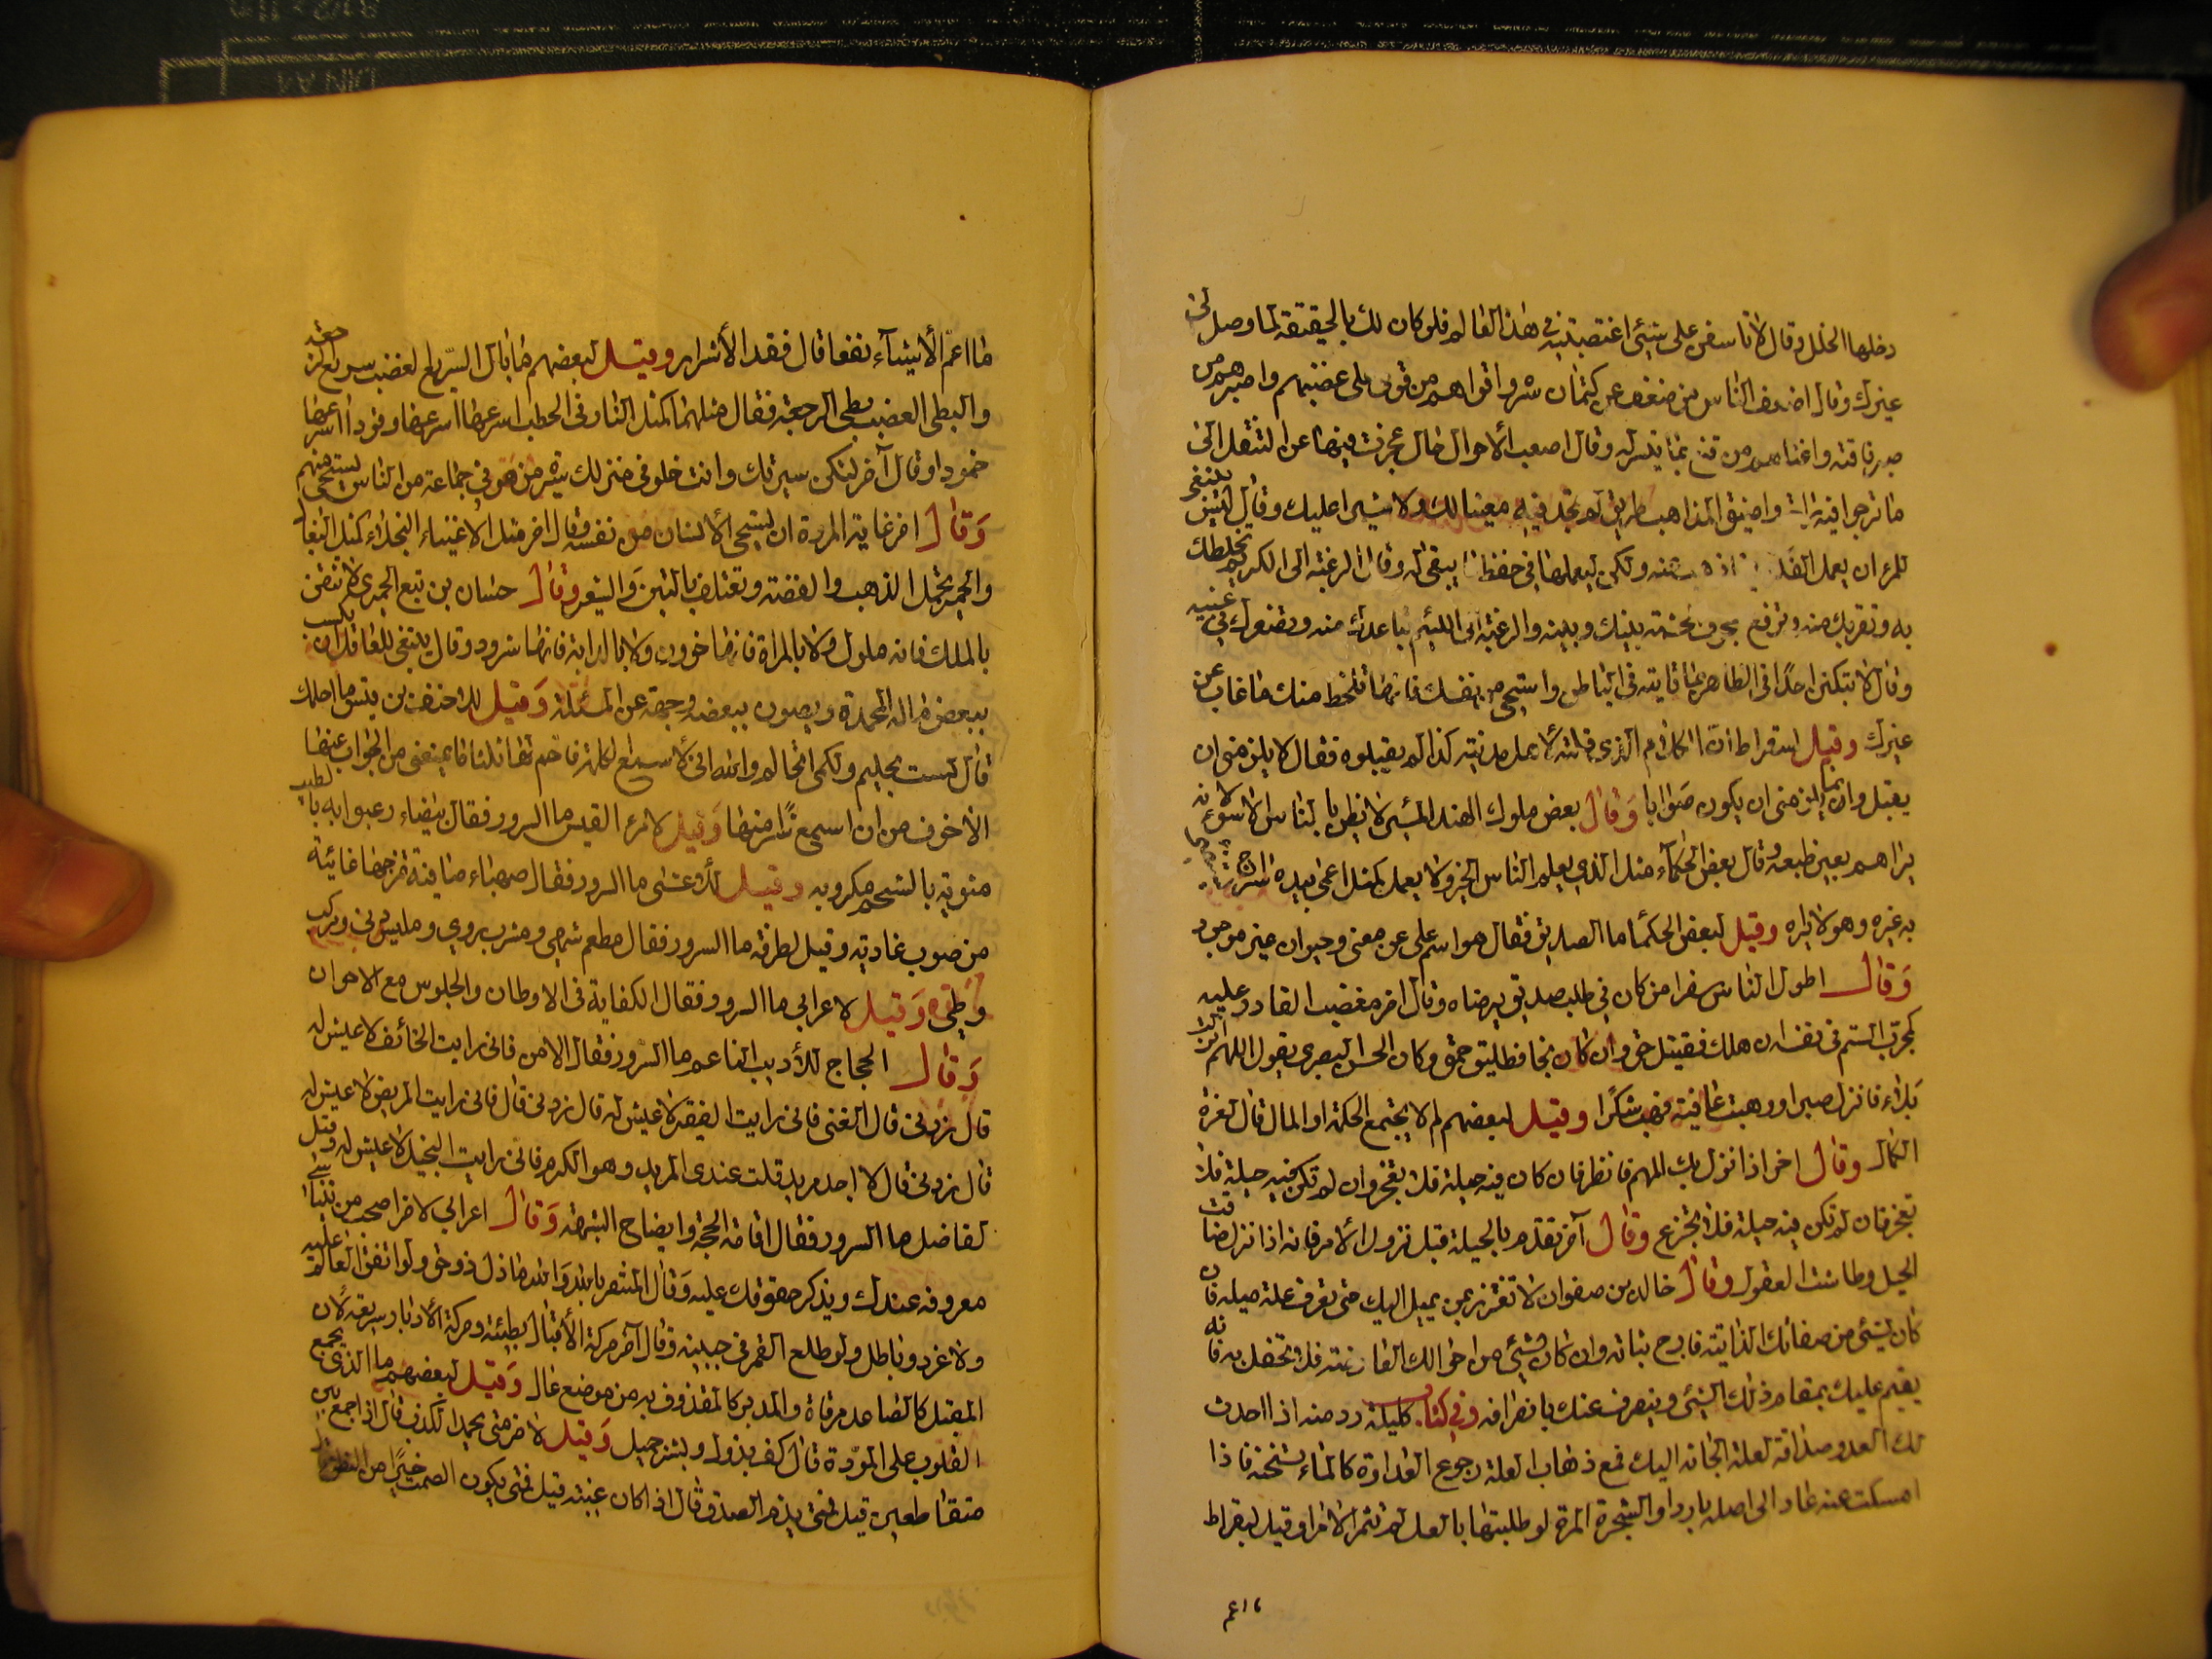 دخلها الخلل وقال لا تاسفن على شيئ اغتصبته في هذا العالم فلو كان لك بالحقيقة لما وصل الى
غيرك وقال اضعف الناس من ضعف عن كتمان سره واقواهم من قوى على غضبه واصبرهم من
فاقته واغناهم من قنع بما تيسر له وقال اصعب الاحوال حال عجزت فيها عن التنقل الى
ما ترجو فيه واضيق المذاهب طريق لم تجد فيه معينا لك ولا مشيرا عليك وقال ينبغى
للمرء ان يعمل ولكن فى حفظ ما يبقى له وقال الرغبة الى الكريم تخلطك
به وتقربك منه وترفع بينك وبينه والرغبة الى اللئيم تباعدك منه
وقال لا تبكتن احدا فى الظاهر بما تاتيه فى الباطن واستحى من نفسك فانها تلحظ منك ما غاب عن
غيرك وقيل لسقراط ان الكلام الذى قلته لاهل مدينة كذا لم يقبلوه فقال لا يلزمنى ان
يقبل وانما يلزمنى ان يكون صوابا وقال بعض ملوك الهند المسئ لا يظن بالناس الا سوء لانه
يراهم بعين طبعه وقال بعض الحكماء مثل الذى يعلم الناس الخير ولا يعمل كمثل اعمى بيده السراج
به غيره وهو لا يراه وقيل لبعض الحكما ما الصديق فقال هو اسم على غير معنى وحيوان غير موجود
وقال اطول الناس سفرا من كان فى طلب صديق يرضاه وقال اخر مغضب القادر عليه
كمجرب السم فى نفسه ان هلك فقتيل حق وان نجا فطليق حمق وكان الحسن البصرى يقول اللهم انزلت
بلاء فانزل صبرا ووهبت عافية فهب شكرا وقيل لبعضهم لم لا يجتمع الحكمة والمال قال لعزة
الكمال وقال اخر اذا نزل بك المهم فانظر فان كان فيه حيلة فلا تعجز وان لم تكن فيه حيلة فلا
تجزع وقال آخر تقدم بالحيلة قبل نزول الامر فانه اذا نزل ضاقت
الحيل وطاشت العقول وقال خالد بن صفوان لا تغترر بمن يميل اليك حتى تعرف علة ميله فان
كان لشئ من صفاتك الذاتية فارج ثباته وان كان لشئ من احوالك العارضة فلا تحفل به فانه
يقيم عليك بمقام ذلك الشئ وينصرف عنك بانصرافه وفى كتاب كليلة ودمنه اذا احدث
لك العدو صداقة لعلة الجاته اليك فمع ذهاب العلة رجوع العداوة كالماء تسخنه فاذا
امسكت عنه عاد الى اصله باردا والشجرة المرة لو طليتها بالعسل لم تثمر الا مرا وقيل لبقراط
ما اعم الأشيآء نفعا قال فقد الأشرار وقيل لبعضهم ما بال السريع الغضب سريع الرجعة
والبطى الغضب بطى الرجعة فقال مثلهما كمثل النار فى الحطب اسرعها وقودا اسرعها
خمودا وقال آخر لتكن سيرتك وانت خلو فى منزلك سيرة من هو فى جماعة من الناس يستحى منهم
وقال اخر غاية المروة ان يستحى الانسان من نفسه وقال اخر مثل الاغنياء البخلاء كمثل البغال
والحمير تحمل الذهب والفضة وتعتلف بالتبن والشعير وقال حسان بن تبع الحميرى لا تثقن
بالملك فانه ملول ولا بالمراة فانها خوون ولا بالدابة فانها شرود وقال ينبغى للعاقل ان يكسب
ببعض ماله المحمدة ويصون ببعضه وجهه عن المسئلة وقيل للاحنف بن قيس ما احلمك
قال لست بحليم ولكنى اتحالم والله انى لاسمع الكلمة فاحم لها ثلثا ما يمنعنى من الجواب عنها
الا خوف من ان اسمع شرا منها وقيل لامرء القيس ما السرور فقال بيضاء رعبوبه بالطيب
مشوبه بالشحم مكروبه وقيل للأعشى ما السرور فقال صهباء صافية تمزجها غانية
من صوب غادية وقيل لطرفة ما السرور فقال مطعم شهى ومشرب روى وملبس دفى ومركب
وطى وقيل لاعرابى ما السرور فقال الكفاية فى الاوطان والجلوس مع الاخوان
وقال الحجاج للأديب الناعم ما السرور فقال الامن فانى رايت الخائف لا عيش له
قال زدنى قال الغنى فانى رايت الفقير لا عيش له قال زدنى قال فانى رايت المريض لا عيش له
قال زدنى قال لا اجد مزيد قلت عندى المزيد وهو الكرم فانى رايت البخيل لا عيش له وقيل
لفاضل ما السرور فقال اقامة الحجة وايضاح الشبهة وقال اعرابى لاخر اصحب من يتناسى
معروفه عندك ويذكر حقوقك عليه وقال والله ما ذل ذو حق ولو اتفق العالم عليه
ولا عز ذو باطل ولو طلع القمر فى جبينه وقال آخر حركة الأقبال بطيئة وحركة الأدبار سريعة لأن
المقبل كالصاعد مرقاة والمدبر كالمقذوف به من موضع عال وقيل لبعضهم ما الذى يجمع
القلوب على المودة قال كف بذول وبشر جميل وقيل لاخر متى يحمد الكذب قال اذا اجمع بين
متقاطعين قيل فمتى يذم الصدق قال اذا كان غيبة قيل فمتى يكون الصمت خيرا من النطق